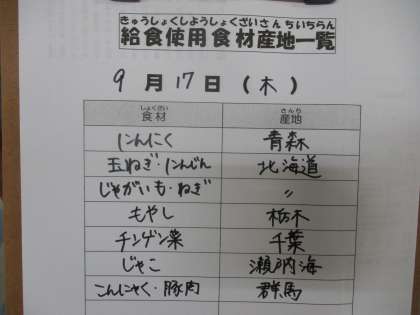 きゅうしょくしようしょくざいさんちいちらん
給食使用食材産地一覧
9月17日(木)
しょくざい さんち
食材 産地
にんにく 青森
玉ねぎ・にんじん 北海道
じゃがいも・ねぎ 〃
もやし 栃木
チンゲン菜 千葉
じゃこ 瀬戸内海
こんにゃく・豚肉 群馬